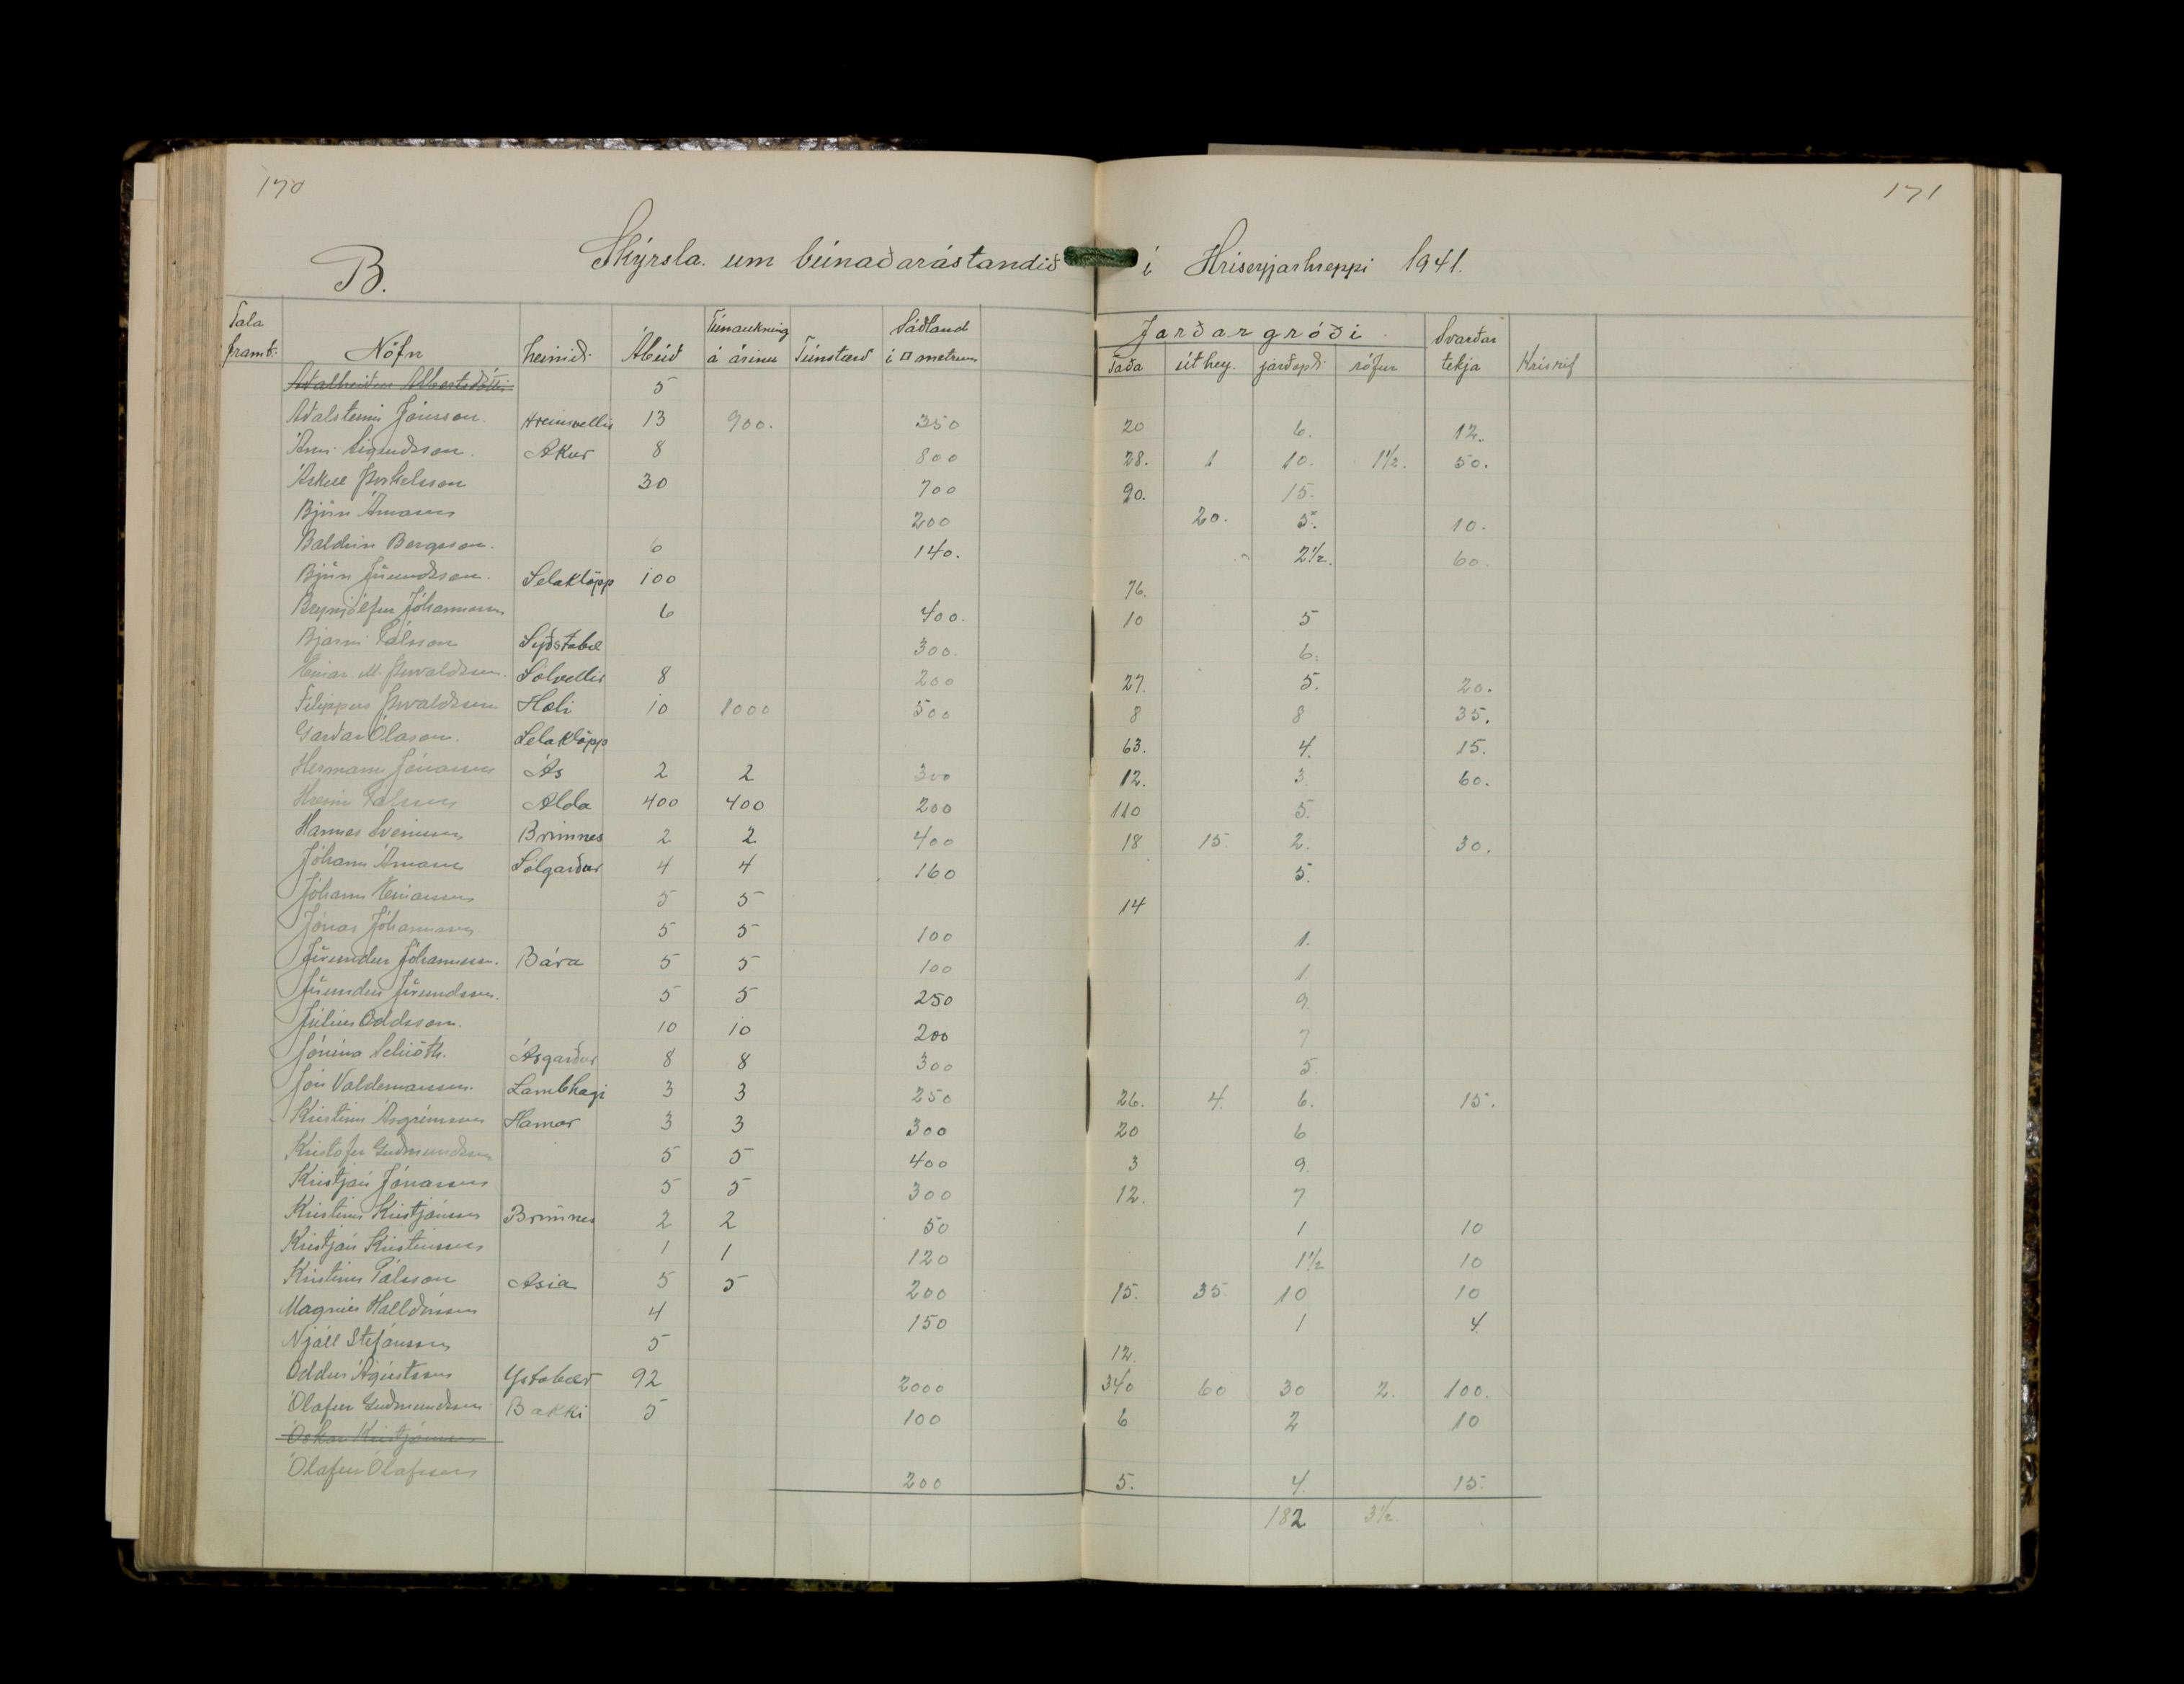 170
171
B. Skýrsla um búnaðarástandið í Hríseyjarhreppi 1941.
Tala framt: Nöfn heimili Ábúð Túnaukning á árinu Túnstærð Sáðland í □ metrum Jarðargróði Taða úthey. jarðepli rófur Svarðar tekja Hrísrif
Aðalheiður Albertsdóttir 5
Aðalsteinn Jónsson Hreinsvellir 13 900. 350 20 6. 12.
Árni Akur 8 800 28. 1 10. 1½. 50.
Áskell Þorkelsson 30 700 90. 15.
Björn Árnason 200 20. 5. 10.
Baldvin Bergsson. 6 140. 2½. 60.
Björn Jörundsson. Selaklöpp 100 76.
Brynjólfur Jóhannesson 6 400. 10 5
Bjarni Pálsson Syðstabæ 300. 6.
Einar M. Þorvaldsson. Sólvellir 8 200 27. 5. 20.
Filippus Þorvaldsson Holi 10 1000 500 8 8 35.
Garðar Ólason. Selaklöpp 63. 4. 15.
Hermann Jónasson Ás 2 2 300 12. 3 60.
Hreinn Pálsson Alda 400 400 200 110 5.
Hannes Sveinsson Brimnes 2 2 400 18 15. 2. 30.
Jóhann Árnason Sólgarður 4 4 160 5.
Jóhann Einarsson 5 5 14
Jónas Jóhannsson 5 5 100 1.
Jörundur Jóhannesson. Bára 5 5 100 1
Jörundur Jörundsson. 5 5 250 9.
Júlíus Oddsson. 10 10 200 7
Jónína Schiöth. Ásgarður 8 8 300 5.
Jón Valdemarsson. Lambhagi 3 3 250 26. 4. 6. 15.
Kristinn Ásgrímsson Hamar 3 3 300 20 6
Kristófer Guðmundsson 5 5 400 3 9.
Kristján Jónasson 5 5 300 12. 7
Kristinn Kristjánsson Brimnes 2 2 50 1 10
Kristján Kristinsson 1 1 120 1½ 10
Kristinn Pálsson Asia 5 5 200 15. 35. 10 10
Magnús Halldórsson 4 150 1 4.
Njáll Stefánsson 5 12.
Oddur Ágústsson Ystabær 92 2000 340 60 30 2. 100.
Ólafur Guðmundsson Bakki 5 100 6 2 10
Óskar Kristjánsson
Ólafur Ólafsson 200 5. 4. 15.
182 3½.